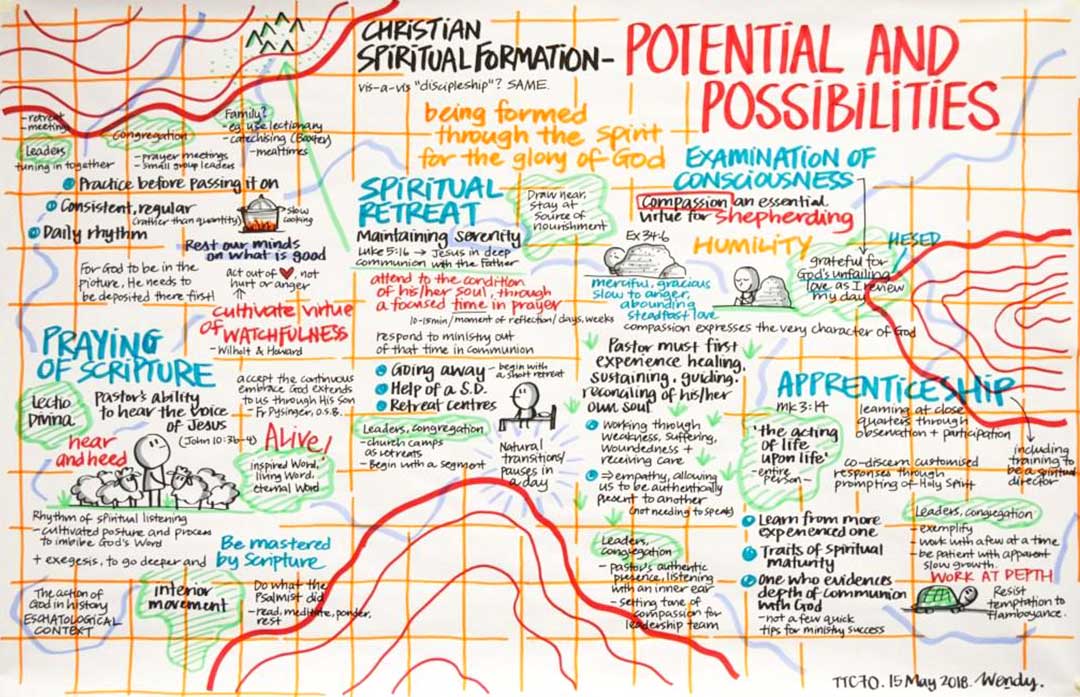 CHRISTIAN
SPIRITUAL FORMATION-
POTENTIAL AND
POSSIBILITIES
vis-a-vis "discipleship"? SAME.
being formed
through the spirit
for the glory of God
-retreat
-meeting
Leaders
tuning in together
Congregation
-prayer meetings
-small group leaders
Family?
-eg. use lectionary
-catechising (Baxter)
-mealtimes
Practice before passing it on
Consistent, regular
(rather than quantity)
slow
cooking
Daily rhythm
Rest our minds
on what is good
For God to be in the
picture, He needs to
be deposited there first!
act out of ♥, not
hurt or anger
cultivate virtue
of WATCHFULNESS
- Wilhoit & Howard
PRAYING
OF SCRIPTURE
Lectio
Divina
Pastor's ability
to hear the voice
of Jesus
(John 10:3b-4)
hear
and heed
accept the continuous
embrace God extends
to us through His Son
- Fr Dysinger, O.S.B.
ALIVE!
inspired Word,
living Word,
eternal Word
Rhythm of spiritual listening
-cultivated posture and process
to imbibe God's Word
+ exegesis, to go deeper and
Be mastered
by Scripture
The action of
God in history
ESCHATOLOGICAL
CONTEXT
interior
movement
Do what the
Psalmist did
-read, meditate, ponder,
rest
SPIRITUAL
RETREAT
Draw near,
stay at
source of
nourishment
Maintaining serenity
Luke 5:16 → Jesus in deep
communion with the Father
attend to the condition
of his/her soul, through
a focused time in prayer
10-15min/moment of reflection/days, weeks
respond to ministry out
of that time in communion
Going away - begin with
a short retreat
Help of a S.D.
Retreat centres
Leaders, congregation
-church camps
as retreats
-Begin with a segment
Natural
transitions/
pauses in
a day
EXAMINATION OF
CONSCIOUSNESS
Compassion an essential
virtue for shepherding
Ex 34:6
HUMILITY
HESED
grateful for
God's unfailing
love as I review
my day
merciful, gracious
slow to anger,
abounding
steadfast love
compassion expresses the very character of God
Pastor must first
experience healing,
sustaining, guiding,
reconciling of his/her
own soul
Working through
weakness, suffering,
woundedness +
receiving care
⇒ empathy, allowing
us to be authentically
present to another
(not needing to speak)
Leaders,
congregation
-pastor's authentic
presence, listening
with an inner ear
-setting tone of
compassion for
leadership team
APPRENTICESHIP
mk 3:14
learning at close
quarters through
observation + participation
'the acting
of life
upon life'
-entire
person-
co-discern customised
responses through
prompting of Holy Spirit
including
training to
be a spiritual
director
Learn from more
experienced one
Traits of spiritual
maturity
One who evidences
depth of communion
with God
-not a few quick
tips for ministry success
Leaders, congregation
-exemplify
-work with few at a time
-be patient with apparent
slow growth.
WORK AT DEPTH
Resist
temptation to
flamboyance.
TTC70. 15 May 2018. Wendy.